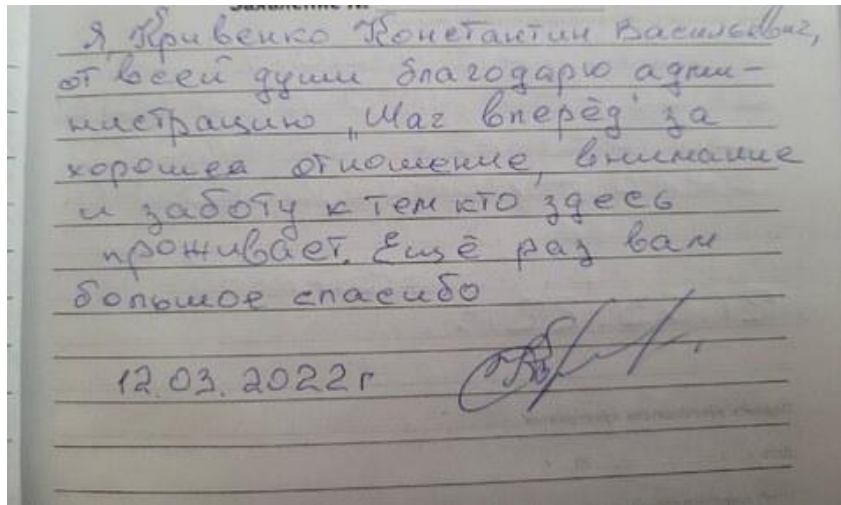 Заявление №
Я, Кривенко Константин Васильевич,
от всей души благодарю адми-
нистрацию „Шаг вперёд" за
хорошее отношение, внимание
и заботу к тем кто здесь
проживает. Ещё раз вам
большое спасибо
12.03.2022г